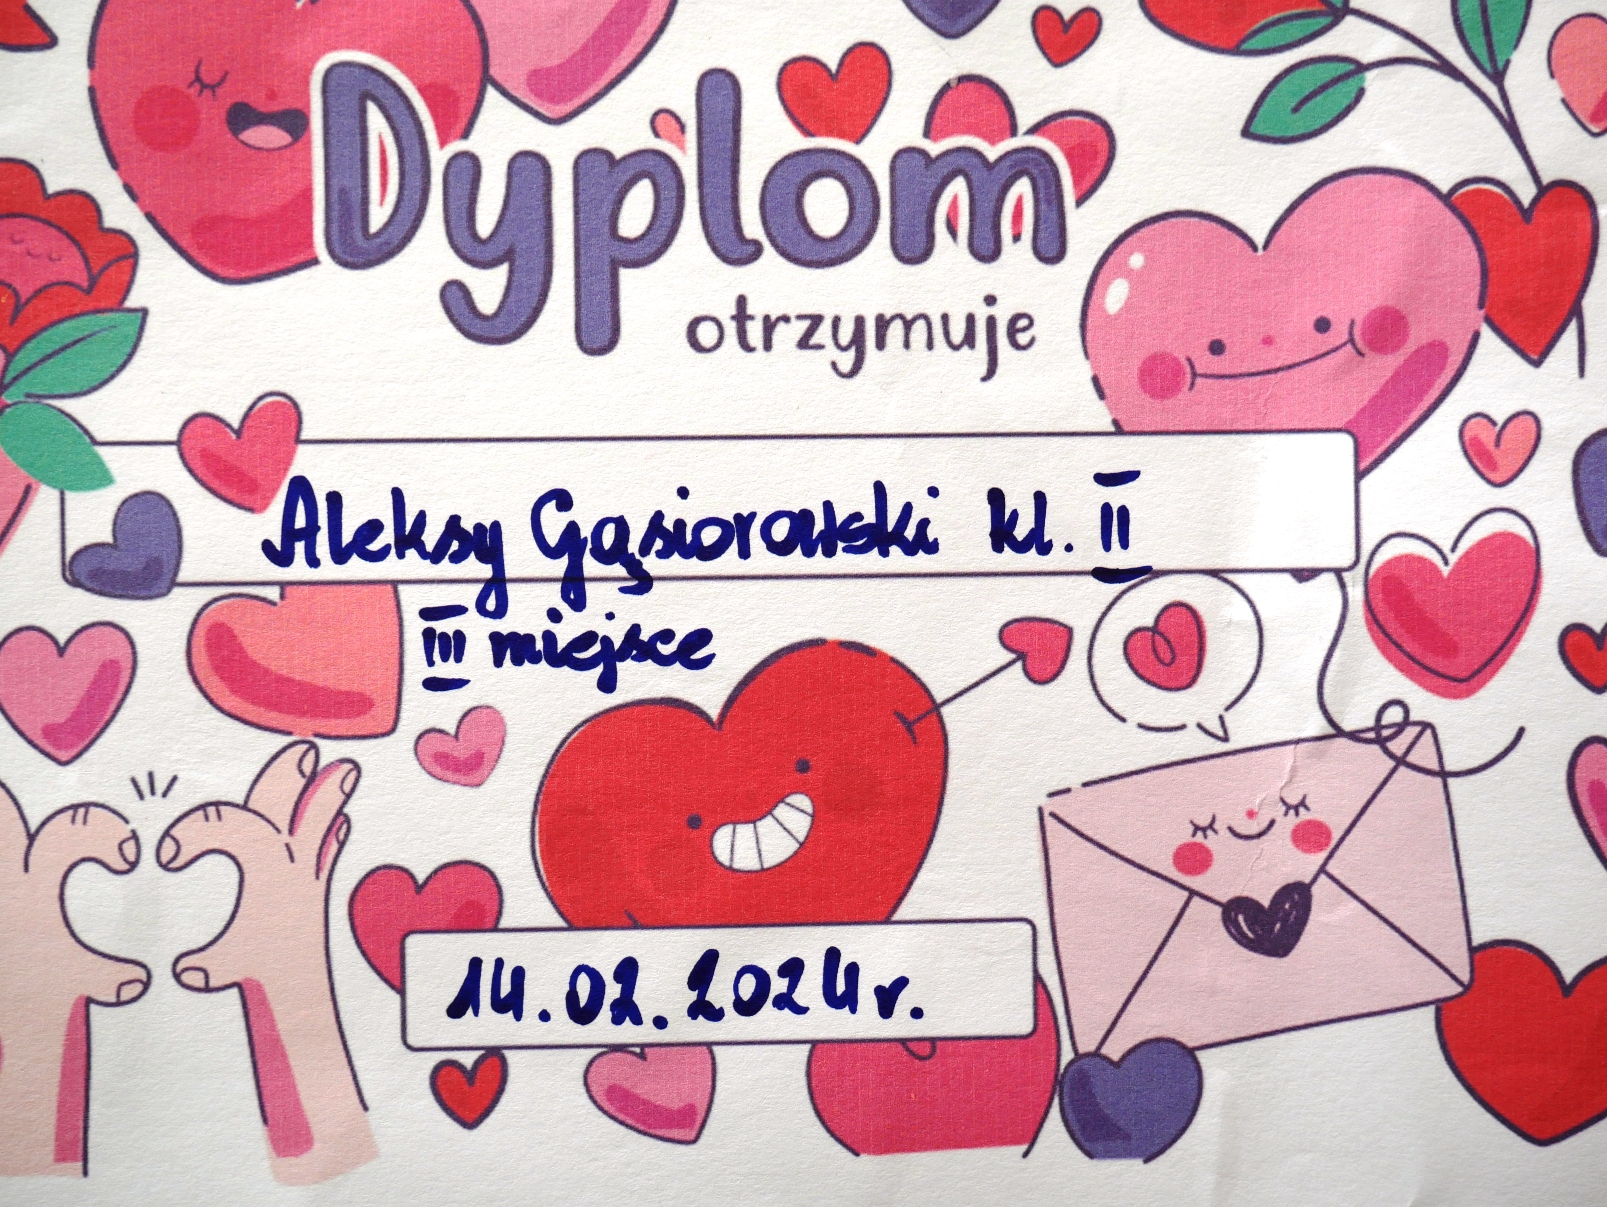 Dyplom
otrzymuje
Aleksy Gąsiorowski kl. II
III miejsce
14.02.2024r.